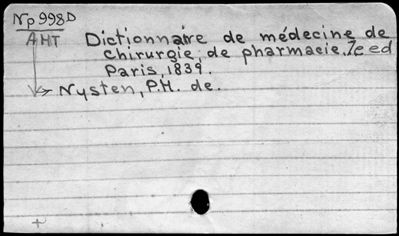 Np998D
AHT
Dictionnaire de médecine de
chirurgie, de pharmacie. 7e ed
Paris, 1839.
Nysten, P.H. de.